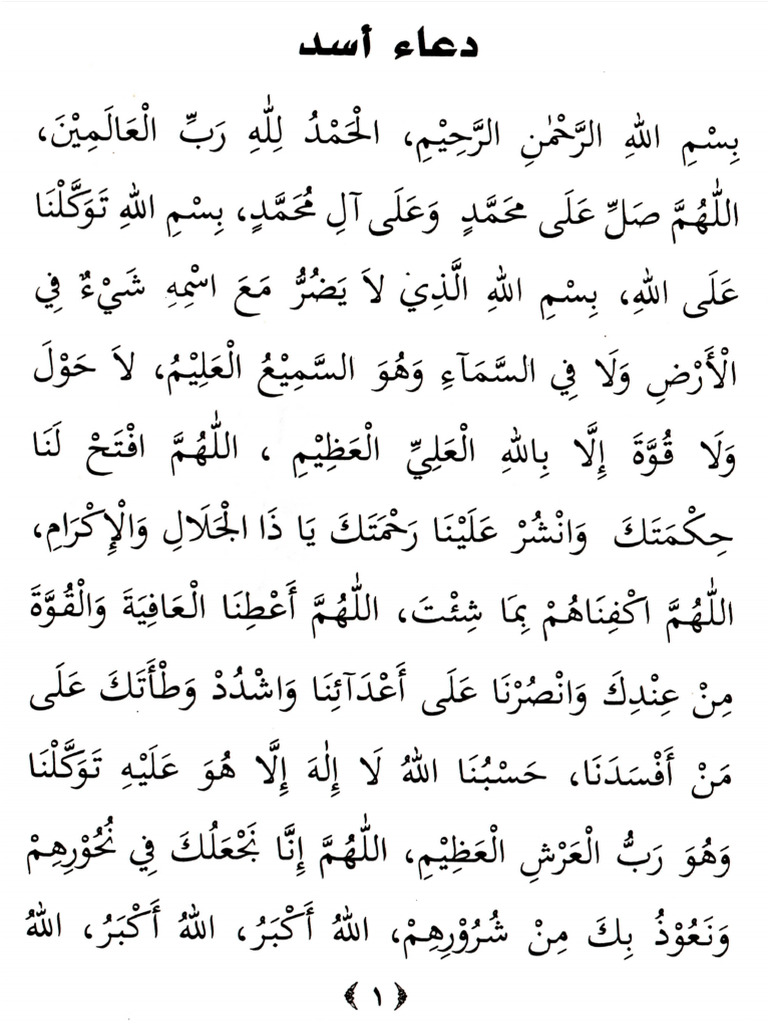 دعاء أسد
بِسْمِ اللهِ الرَّحْمٰنِ الرَّحِيْمِ، الْحَمْدُ لِلّٰهِ رَبِّ الْعَالَمِيْنَ،
اللّٰهُمَّ صَلِّ عَلَى مُحَمَّدٍ وَعَلَى آلِ مُحَمَّدٍ، بِسْمِ اللهِ تَوَكَّلْنَا
عَلَى اللهِ، بِسْمِ اللهِ الَّذِيْ لاَ يَضُرُّ مَعَ اسْمِهِ شَيْءٌ فِي
الْأَرْضِ وَلَا فِي السَّمَآءِ وَهُوَ السَّمِيْعُ الْعَلِيْمُ، لاَ حَوْلَ
وَلَا قُوَّةَ إِلَّا بِاللهِ الْعَلِيِّ الْعَظِيْمِ ، اللّٰهُمَّ افْتَحْ لَنَا
حِكْمَتَكَ وَانْشُرْ عَلَيْنَا رَحْمَتَكَ يَا ذَا الْجَلَالِ وَالْإِكْرَامِ،
اللّٰهُمَّ اكْفِنَاهُمْ بِمَا شِئْتَ، اللّٰهُمَّ أَعْطِنَا الْعَافِيَةَ وَالْقُوَّةَ
مِنْ عِنْدِكَ وَانْصُرْنَا عَلَى أَعْدَآئِنَا وَاشْدُدْ وَطْأَتَكَ عَلَى
مَنْ أَفْسَدَنَا، حَسْبُنَا اللهُ لَا إِلٰهَ إِلَّا هُوَ عَلَيْهِ تَوَكَّلْنَا
وَهُوَ رَبُّ الْعَرْشِ الْعَظِيْمِ، اللّٰهُمَّ إِنَّا نَجْعَلُكَ فِي نُحُوْرِهِمْ
وَنَعُوْذُ بِكَ مِنْ شُرُوْرِهِمْ، اللهُ أَكْبَرُ، اللهُ أَكْبَرُ، اللهُ
﴿ ١ ﴾